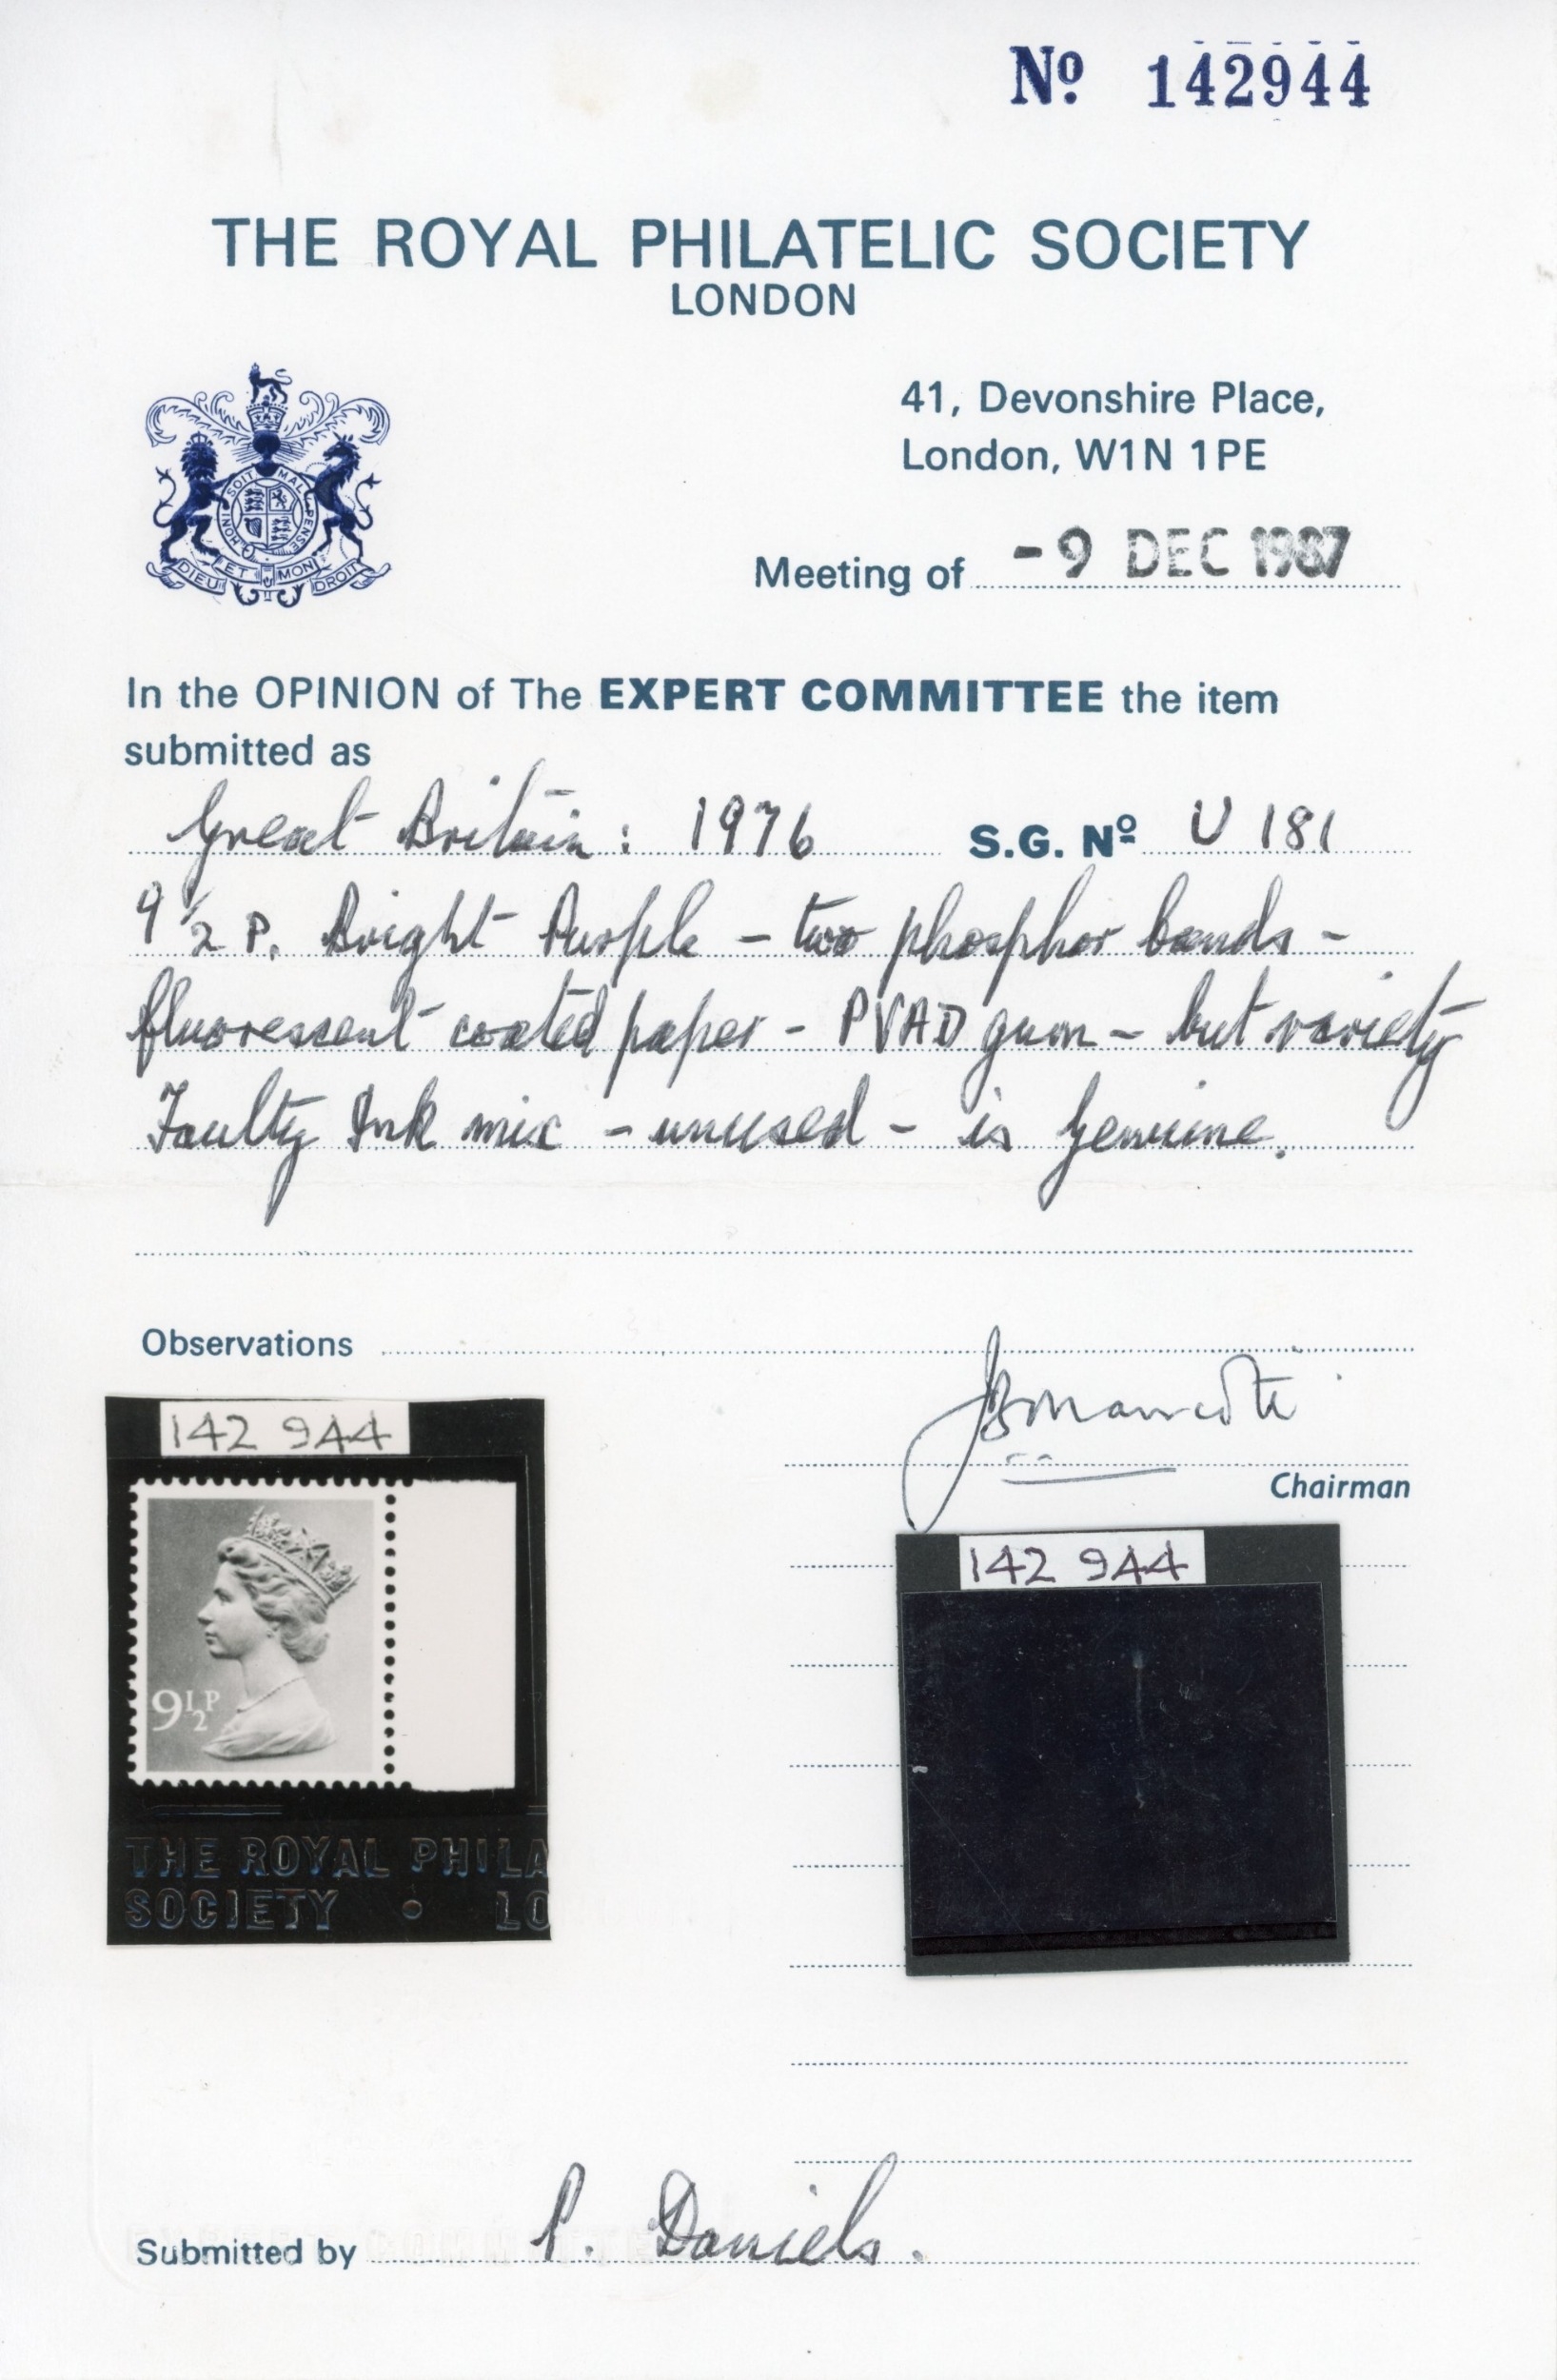 Nº 142944
THE ROYAL PHILATELIC SOCIETY
LONDON
41, Devonshire Place,
London, W1N 1PE
HONI SOIT MAL PENSE
DIEU ET MON DROIT
Meeting of -9 DEC 1987
In the OPINION of The EXPERT COMMITTEE the item
submitted as
Great Britain: 1976 S.G. Nº U 181
9 1/2 P. Bright Purple – two phosphor bands –
fluorescent coated paper – PVAD gum – but variety
Faulty Ink mix – unused – is Genuine.
Observations
Chairman
142 944
9½P
THE ROYAL PHILA
SOCIETY • LO
142 944
Submitted by P. Daniels.